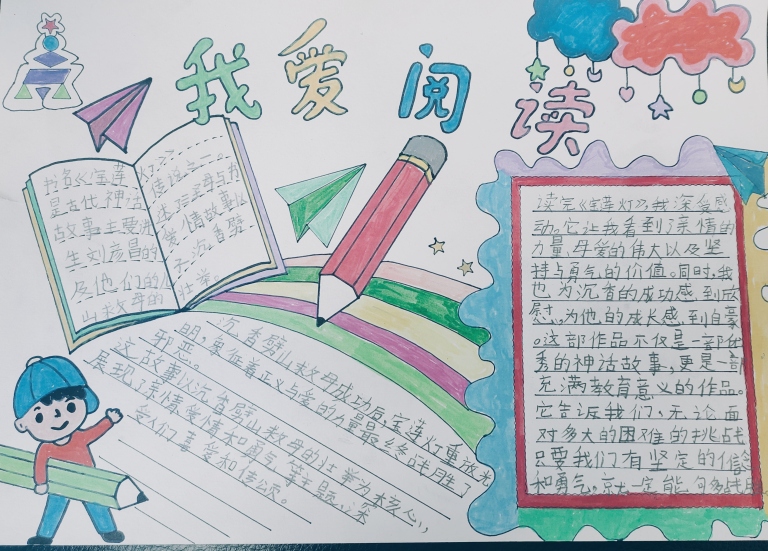 我爱阅读
书名《宝莲灯》>>
是古代神话传说之一。
故事主要
生刘彦昌的爱情故事以
及他们的儿子沉香劈
山救母的壮举。
沉香劈山救母成功后,宝莲灯重放光
明,象征着正义与爱的力量最终战胜了
邪恶。
这故事以沉香劈山救母的壮举为核心,
展现了亲情、爱情和勇气等主题,深
受人们喜爱和传颂。
读完《宝莲灯》我深受感
动。它让我看到了亲情的
力量,母爱的伟大以及坚
持与勇气的价值。同时,我
也为沉香的成功感到欣
慰,为他的成长感到自豪
。这部作品不仅是一部优
秀的神话故事,更是一部
充满教育意义的作品。
它告诉我们,无论面
对多大的困难的挑战
只要我们有坚定的信念
和勇气,就一定能够战胜